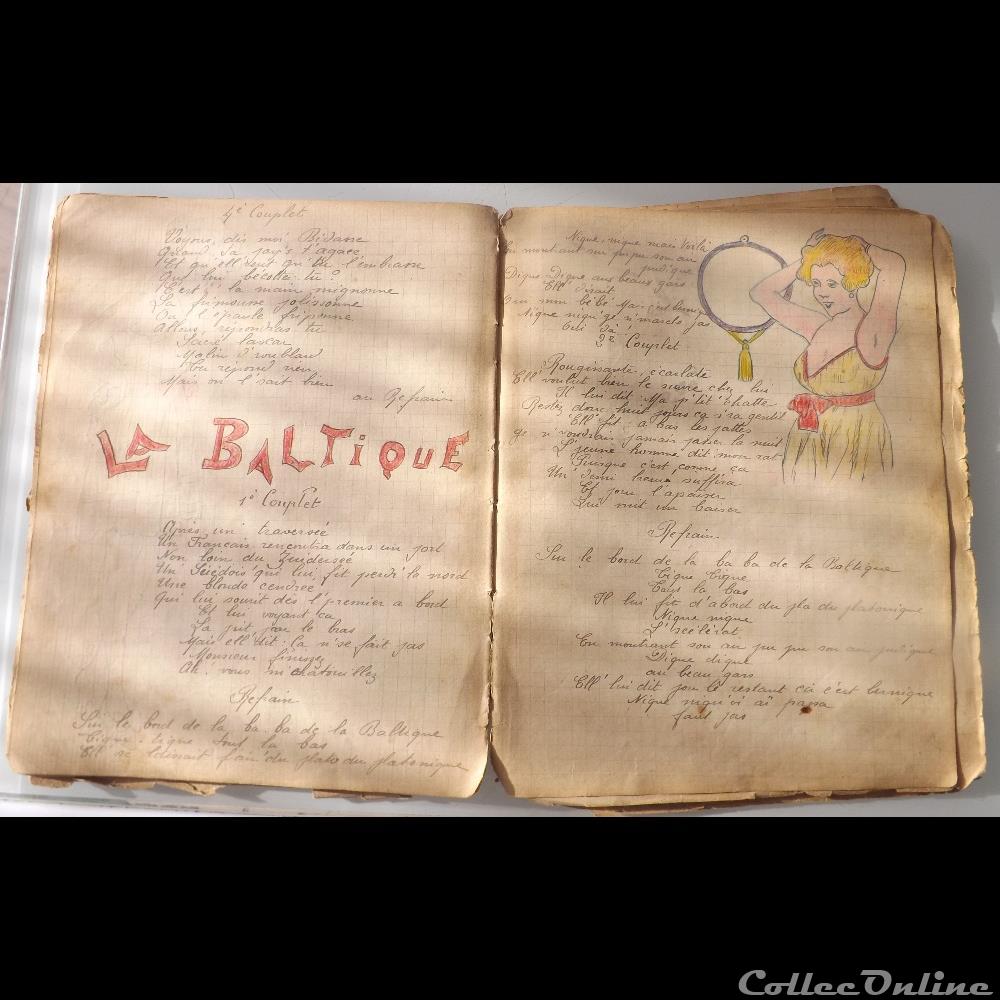 4e Couplet
Voyons, dis moi, Bidasse
Quand sa pay'se t'agace
Et qu'ell' veut qu'tu l'embrasse
Quoi lui bécotte tu ?
C'est y la main mignonne
La frimousse polissonne
Ou l'épaule friponne
Allons, répondras tu
Sacré lascar
Malin d'roublard
Tu répond rien
Mais on l'sait bien
au Refrain
LA BALTIQUE
1e Couplet
Après un' traversée
Un Français rencontra dans un port
Non loin du Zuidersée
Un' Suédois' qui lui fit perdr' la nord
Une blonde cendrée
Qui lui sourit dès l'premier a bord
Et lui voyant ça
La prit par le bras
Mais ell' dit : ça n'se fait pas
Monsieur finissez
Ah! vous m'chatouillez
Refrain
Sur le bord de la ba, ba de la Baltique
Tique, tique tout là bas
Ell' se l'disait fair' du plato du platonique
Nique, nique mais voilà
En montrant su pu pu son au
pudique
Digue, digue aux beaux gars
Ell' disait
mon bébé Mais c'est bernique
Nique niqu' ça n'march' pas
Oui dà!
2e Couplet
Rougissante, écarlate
Ell' voulut bien le suivre chez lui
Il lui dit Ma p'tit' chatte
Restez donc huit jours ça s'ra gentil
Ell' fit : a bas les pattes
je n'voudrais jamais passer la nuit
L'jeune homme dit mon rat
Puisque c'est comme ça
Un' demi heure suffira
Et pour l'apaiser
Lui mit un baiser
Refrain
Sur le bord de la ba ba de la Baltique
Tique Tique
Tout là bas
Il lui fit d'abord du pla du platonique
Nique nique
L'scélérat
En montrant son au pu pu son au pudique
Digue digue
au beau gars
Ell' lui dit pour le restant ici c'est bernique
Nique niqu'
faut pas
ColleeOnline